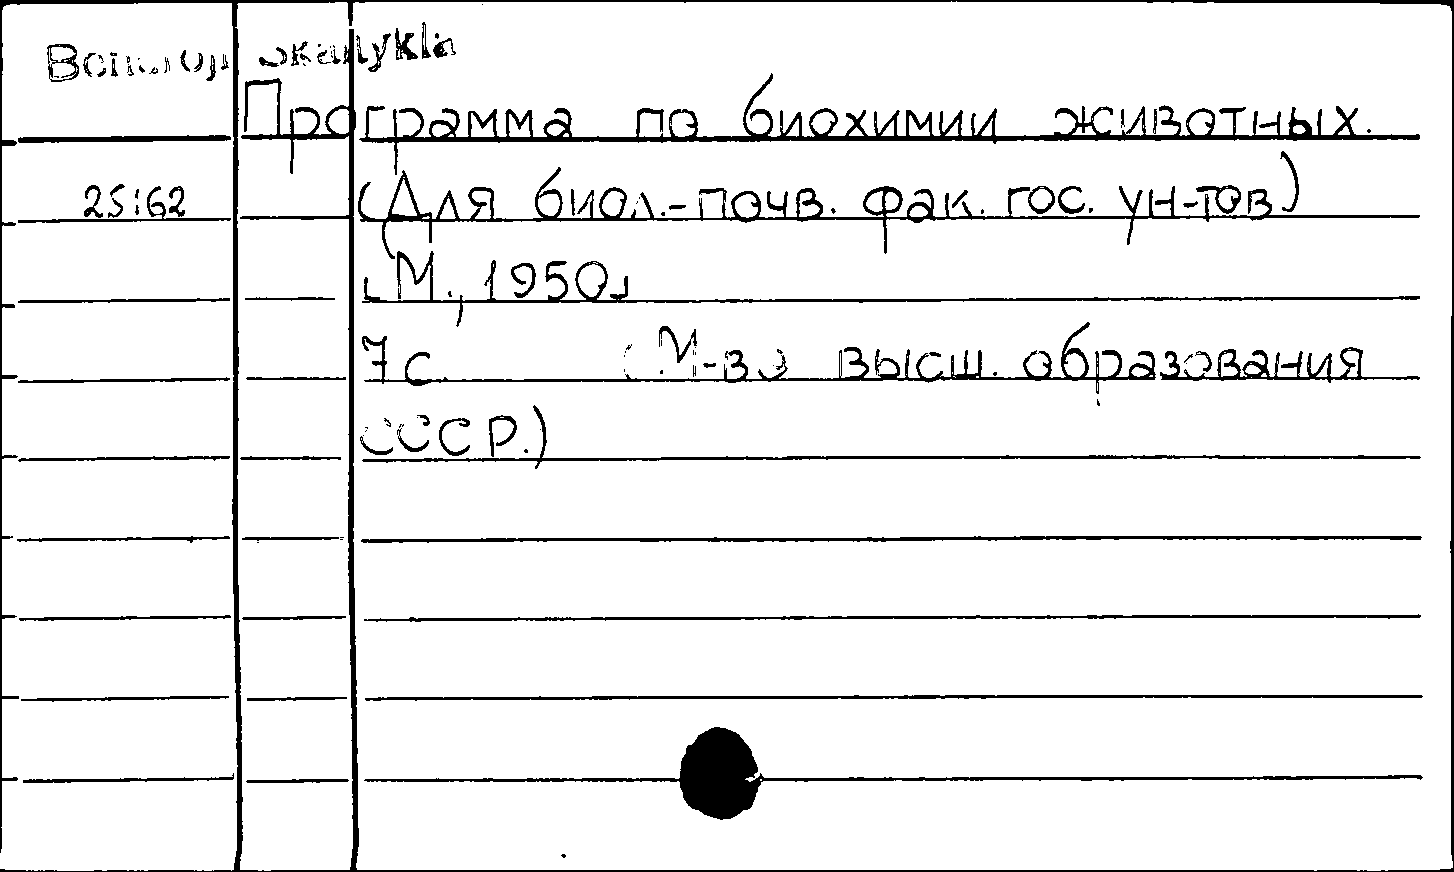 Программа по биохимии животных.
25:62 (Для биол.-почв. фак. гос. ун-тов)
[М., 1950]
7 с. (М-во высш. образования
СССР.)